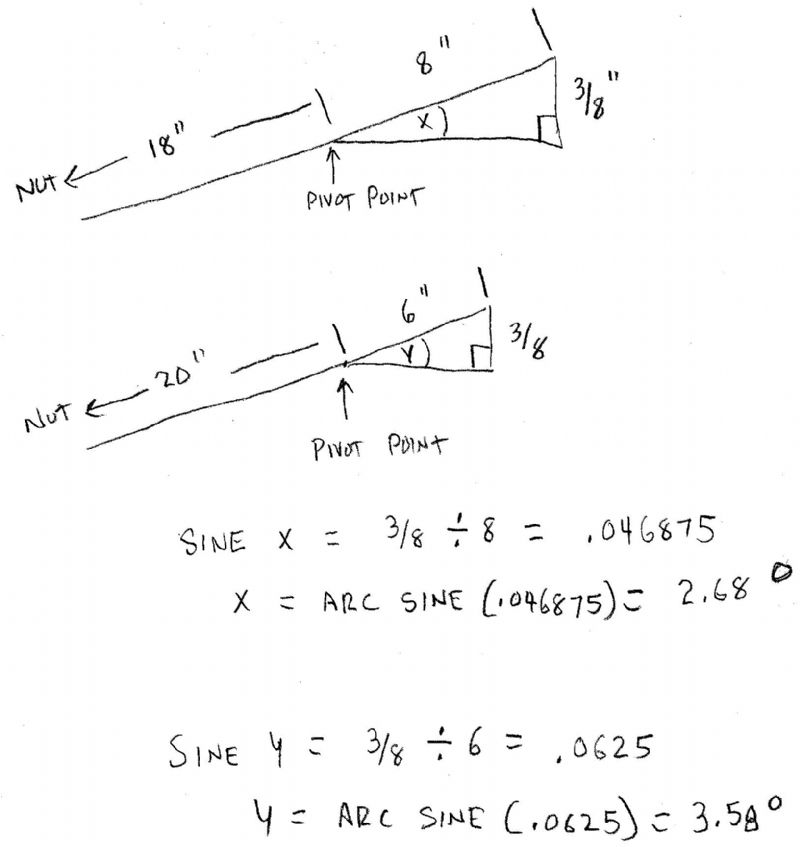 8"
3/8"
X
18"
NUT
PIVOT POINT
6"
3/8
Y
20"
NUT
PIVOT POINT
SINE X = 3/8 ÷ 8 = .046875
X = ARC SINE (.046875) = 2.68°
SINE Y = 3/8 ÷ 6 = .0625
Y = ARC SINE (.0625) = 3.58°